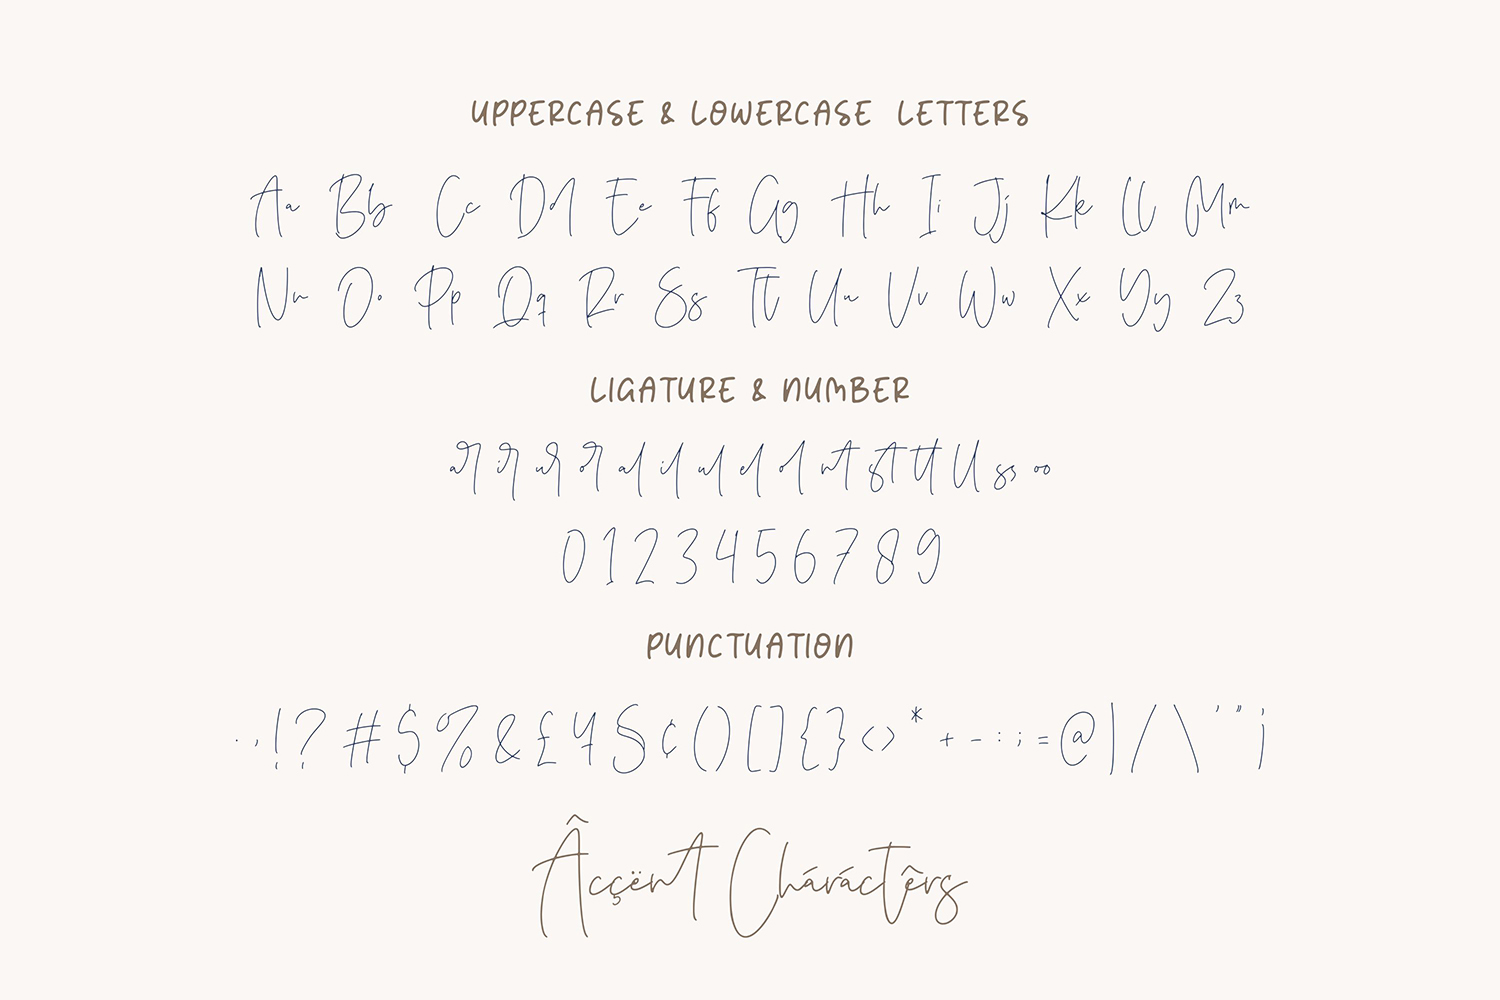 UPPERCASE & LOWERCASE LETTERS
Aa Bb Cc Dd Ee Ff Gg Hh Ii Jj Kk Ll Mm
Nn Oo Pp Qq Rr Ss Tt Uu Vv Ww Xx Yy Zz
LIGATURE & NUMBER
0 1 2 3 4 5 6 7 8 9
PUNCTUATION
. , ! ? # $ % & £ ¥ § ¢ ( ) [ ] { } < > * + - : ; = @ | / \ ' " ¡
Âççënt Chárác̀têrs